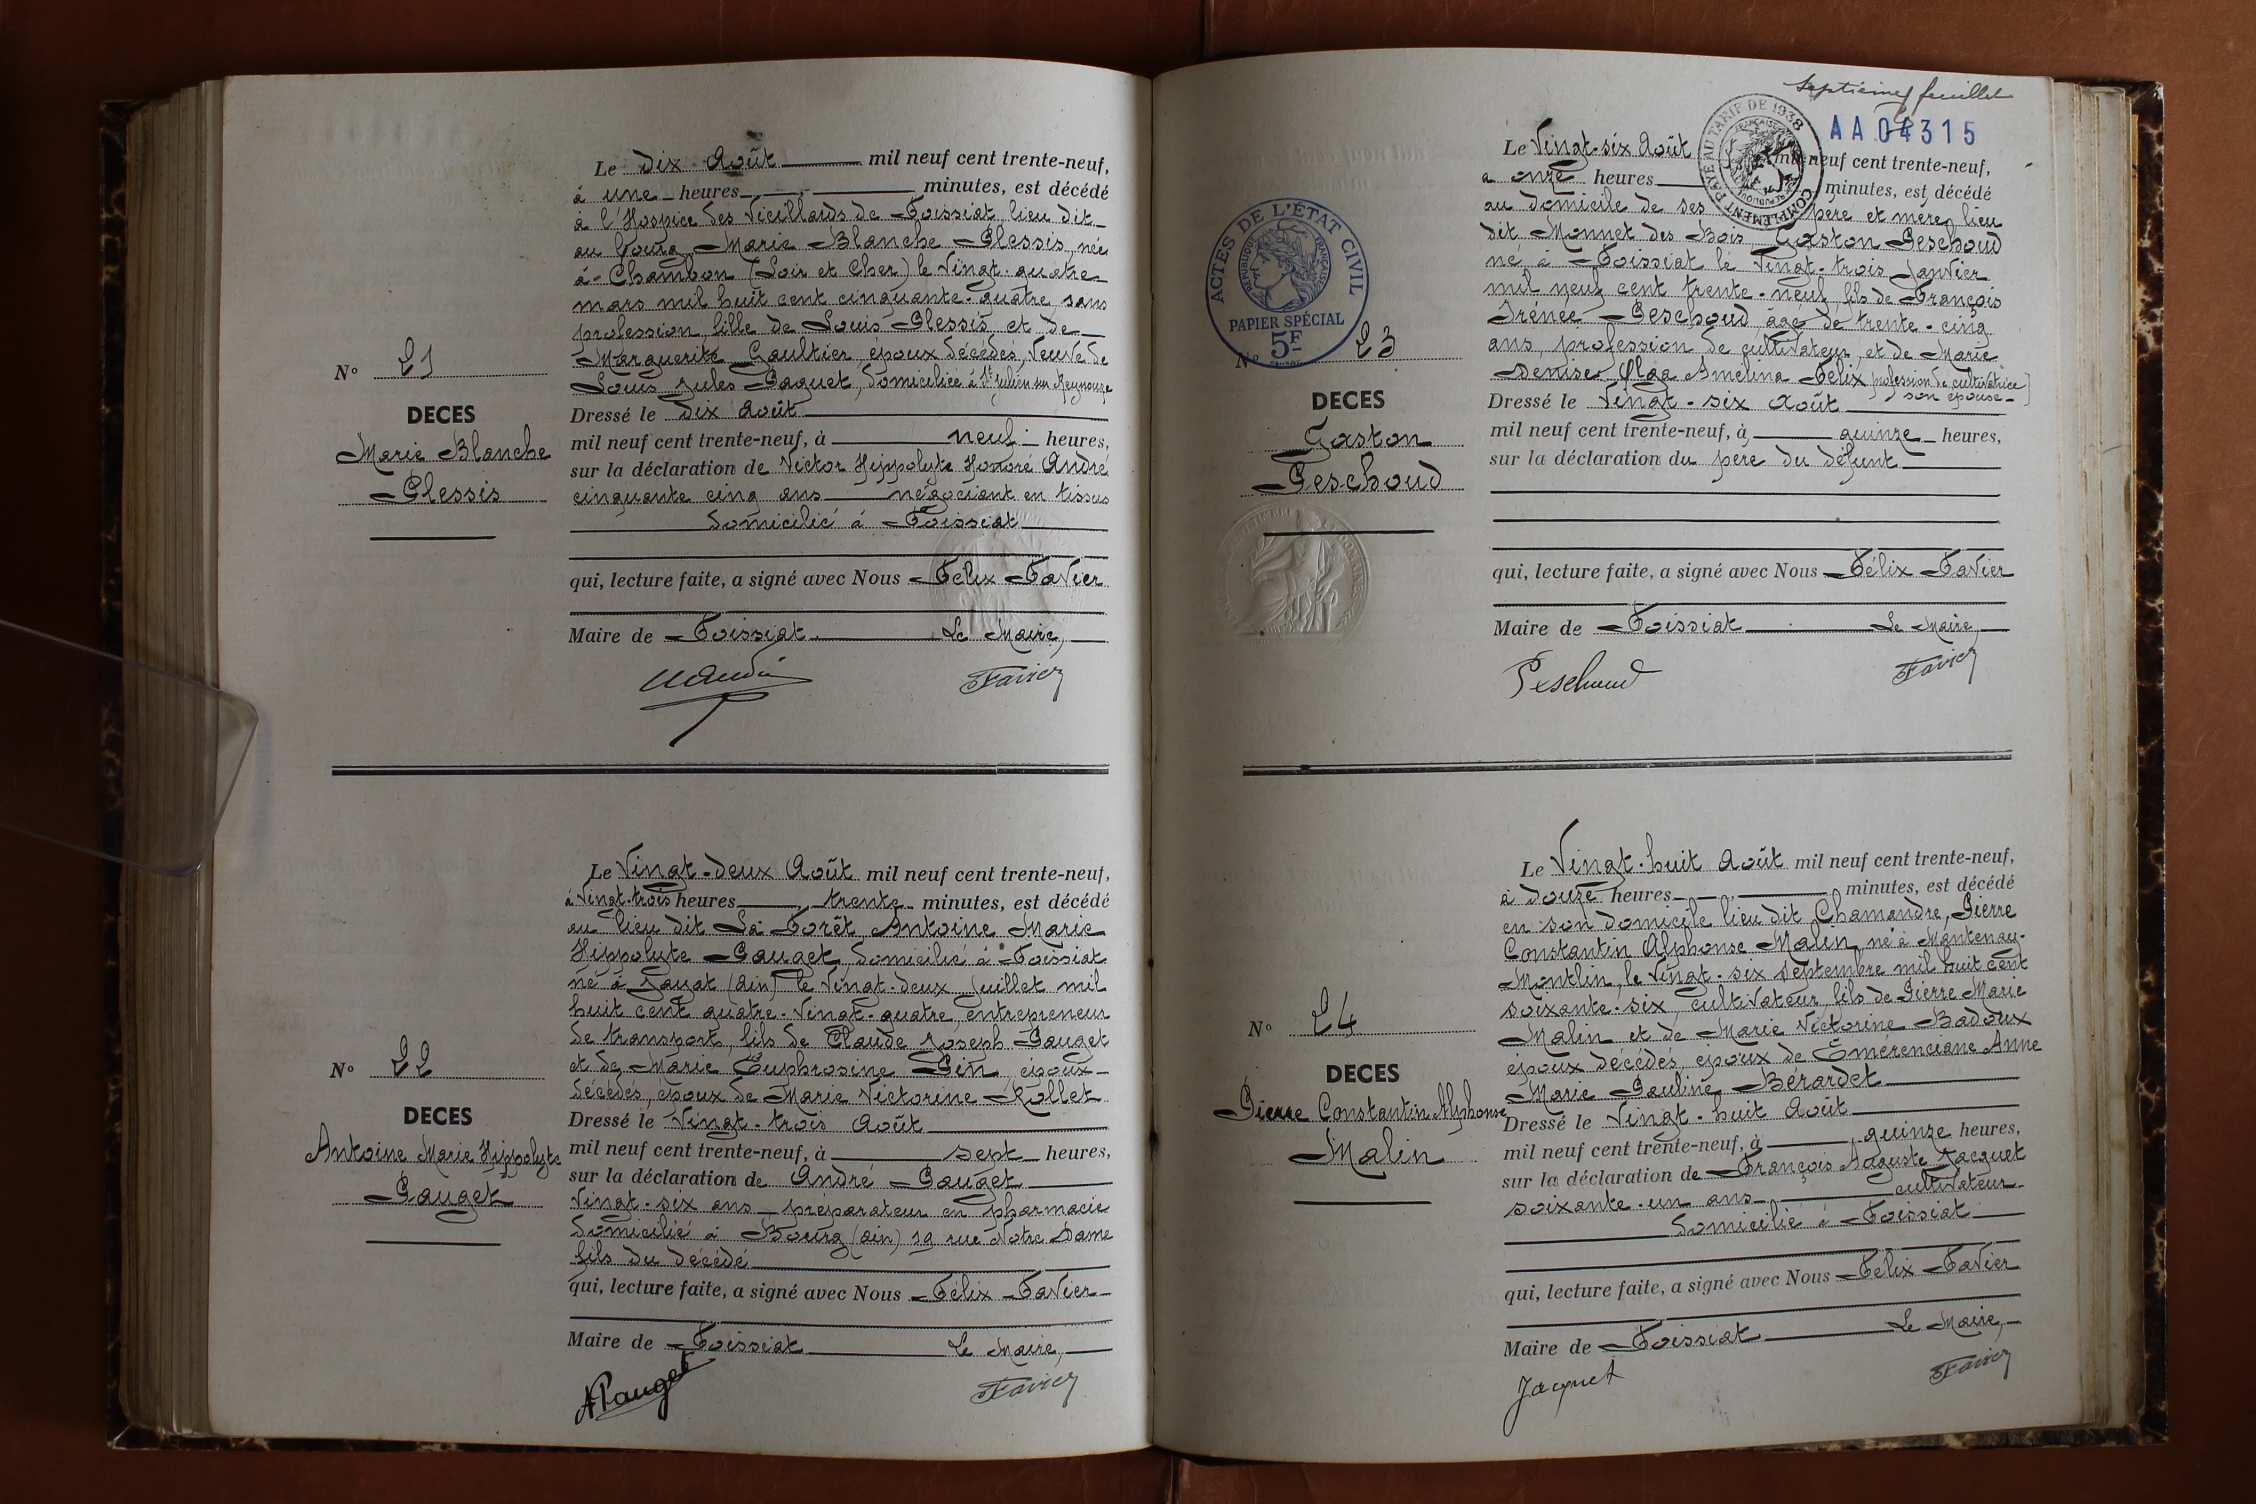 Le dix Août mil neuf cent trente-neuf,
à une heures minutes, est décédé
à l'Hospice des Vieillards de Foissiat, lieu dit
au bourg Marie Blanche Plessis, née
à Chambon (Loir et Cher) le Vingt-quatre
mars mil huit cent cinquante-quatre, sans
profession, fille de Louis Plessis et de
Marguerite Gaultier, époux décédés, Veuve de
Louis Jules Paquet, domiciliée à St Julien sur Reyssouze
Nº 21
DECES
Marie Blanche
Plessis
Dressé le dix Août
mil neuf cent trente-neuf, à neuf heures,
sur la déclaration de Victor Hippolyte Honoré André
cinquante cinq ans négociant en tissus
domicilié à Foissiat
qui, lecture faite, a signé avec Nous Félix Favier
Maire de Foissiat Le Maire,
Favier
Le Vingt-deux Août mil neuf cent trente-neuf,
à Vingt-trois heures, trente minutes, est décédé
au lieu dit La Forêt, Antoine Marie
Hippolyte Pauget, domicilié à Foissiat
né à Jayat (Ain) le Vingt-deux Juillet mil
huit cent quatre-Vingt-quatre, entrepreneur
de transports, fils de Claude Joseph Pauget
et de Marie Euphrosine Pin, époux
décédés, époux de Marie Victorine Rollet
Nº 22
DECES
Antoine Marie Hippolyte
Pauget
Dressé le Vingt-trois Août
mil neuf cent trente-neuf, à sept heures,
sur la déclaration de André Pauget
Vingt-six ans préparateur en pharmacie
domicilié à Bourg (Ain) 19 rue Notre Dame
fils du décédé
qui, lecture faite, a signé avec Nous Félix Favier
Maire de Foissiat Le Maire,
APauget Favier
septième feuillet
AA04315
COMPLÉMENT PAYÉ AU TARIF DE 1938
Le Vingt-six Août mil neuf cent trente-neuf,
à onze heures minutes, est décédé
au domicile de ses père et mère, lieu
dit Monnet des Bois Gaston Peschoud
né à Foissiat le Vingt-trois Janvier
mil neuf cent trente-neuf, fils de François
Irénée Peschoud, âgé de trente-cinq
ans, profession de cultivateur, et de Marie
Denise Olga Amelina Félix, profession de cultivatrice
son épouse
ACTES DE L'ÉTAT CIVIL
RÉPUBLIQUE FRANÇAISE
PAPIER SPÉCIAL
5F
Nº 23
DECES
Gaston
Peschoud
Dressé le Vingt-six Août
mil neuf cent trente-neuf, à quinze heures,
sur la déclaration du père du défunt
qui, lecture faite, a signé avec Nous Félix Favier
Maire de Foissiat Le Maire,
Peschoud Favier
Le Vingt-huit Août mil neuf cent trente-neuf,
à douze heures minutes, est décédé
en son domicile lieu dit Chamandre, Pierre
Constantin Alphonse Malin, né à Mantenay-
Montlin, le Vingt-six septembre mil huit cent
soixante-six, cultivateur, fils de Pierre Marie
Malin et de Marie Victorine Badoux
époux décédés, époux de Emérenciane Anne
Marie Pauline Bérardet
Nº 24
DECES
Pierre Constantin Alphonse
Malin
Dressé le Vingt-huit Août
mil neuf cent trente-neuf, à quinze heures,
sur la déclaration de François Auguste Jacquet
soixante-un ans cultivateur
domicilié à Foissiat
qui, lecture faite, a signé avec Nous Félix Favier
Maire de Foissiat Le Maire,
Jacquet Favier